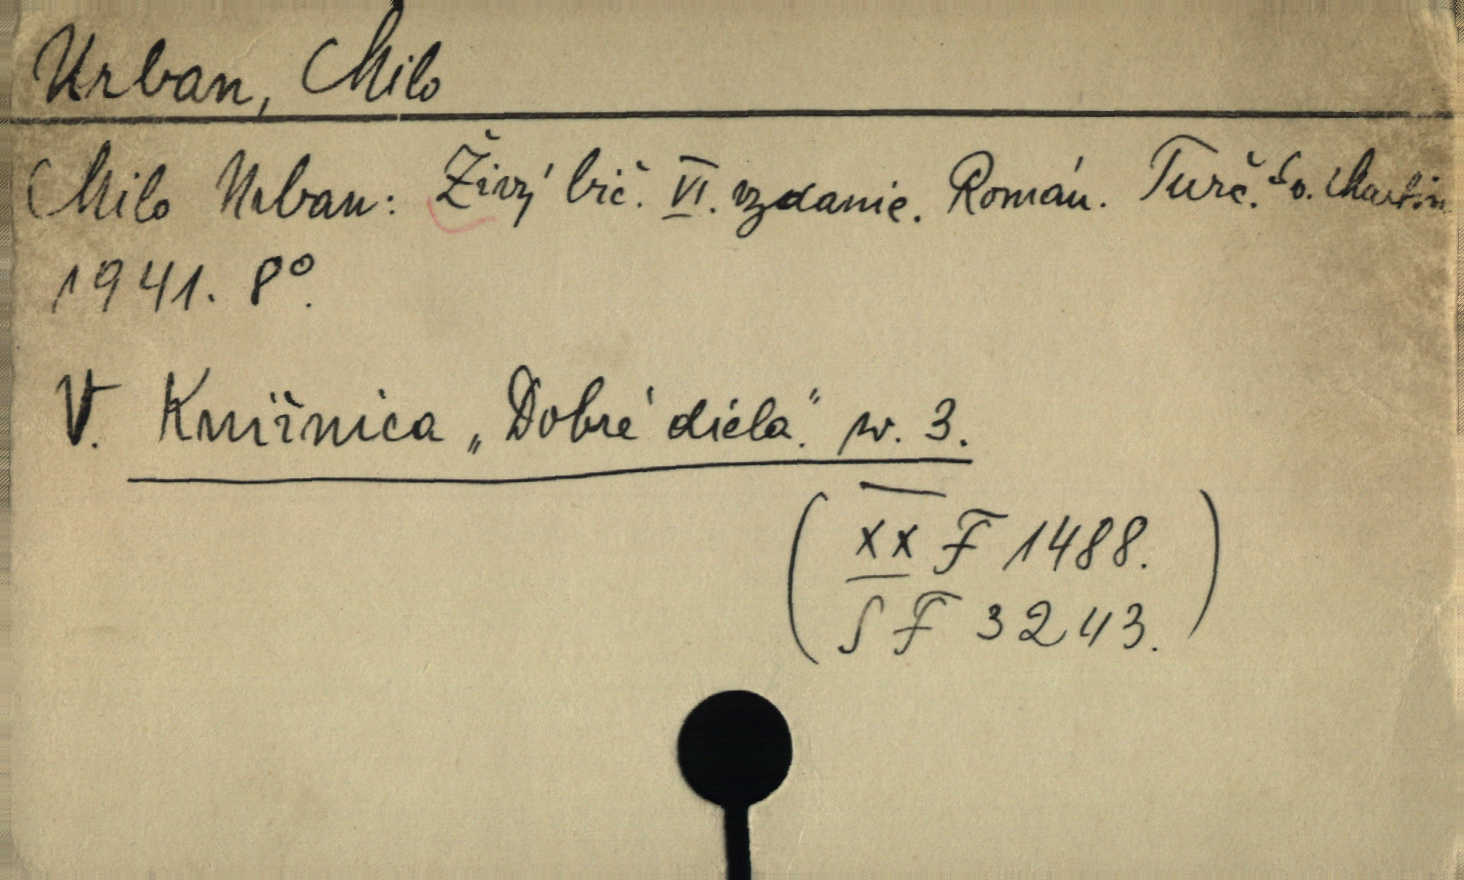 Urban, Milo
Milo Urban: Živý bič. VI. vydanie. Román. Turč. Sv. Martin
1941. 8°.
V. Knižnica „Dobré diela." sv. 3.
( XX F 1488. )
( S F 3243. )